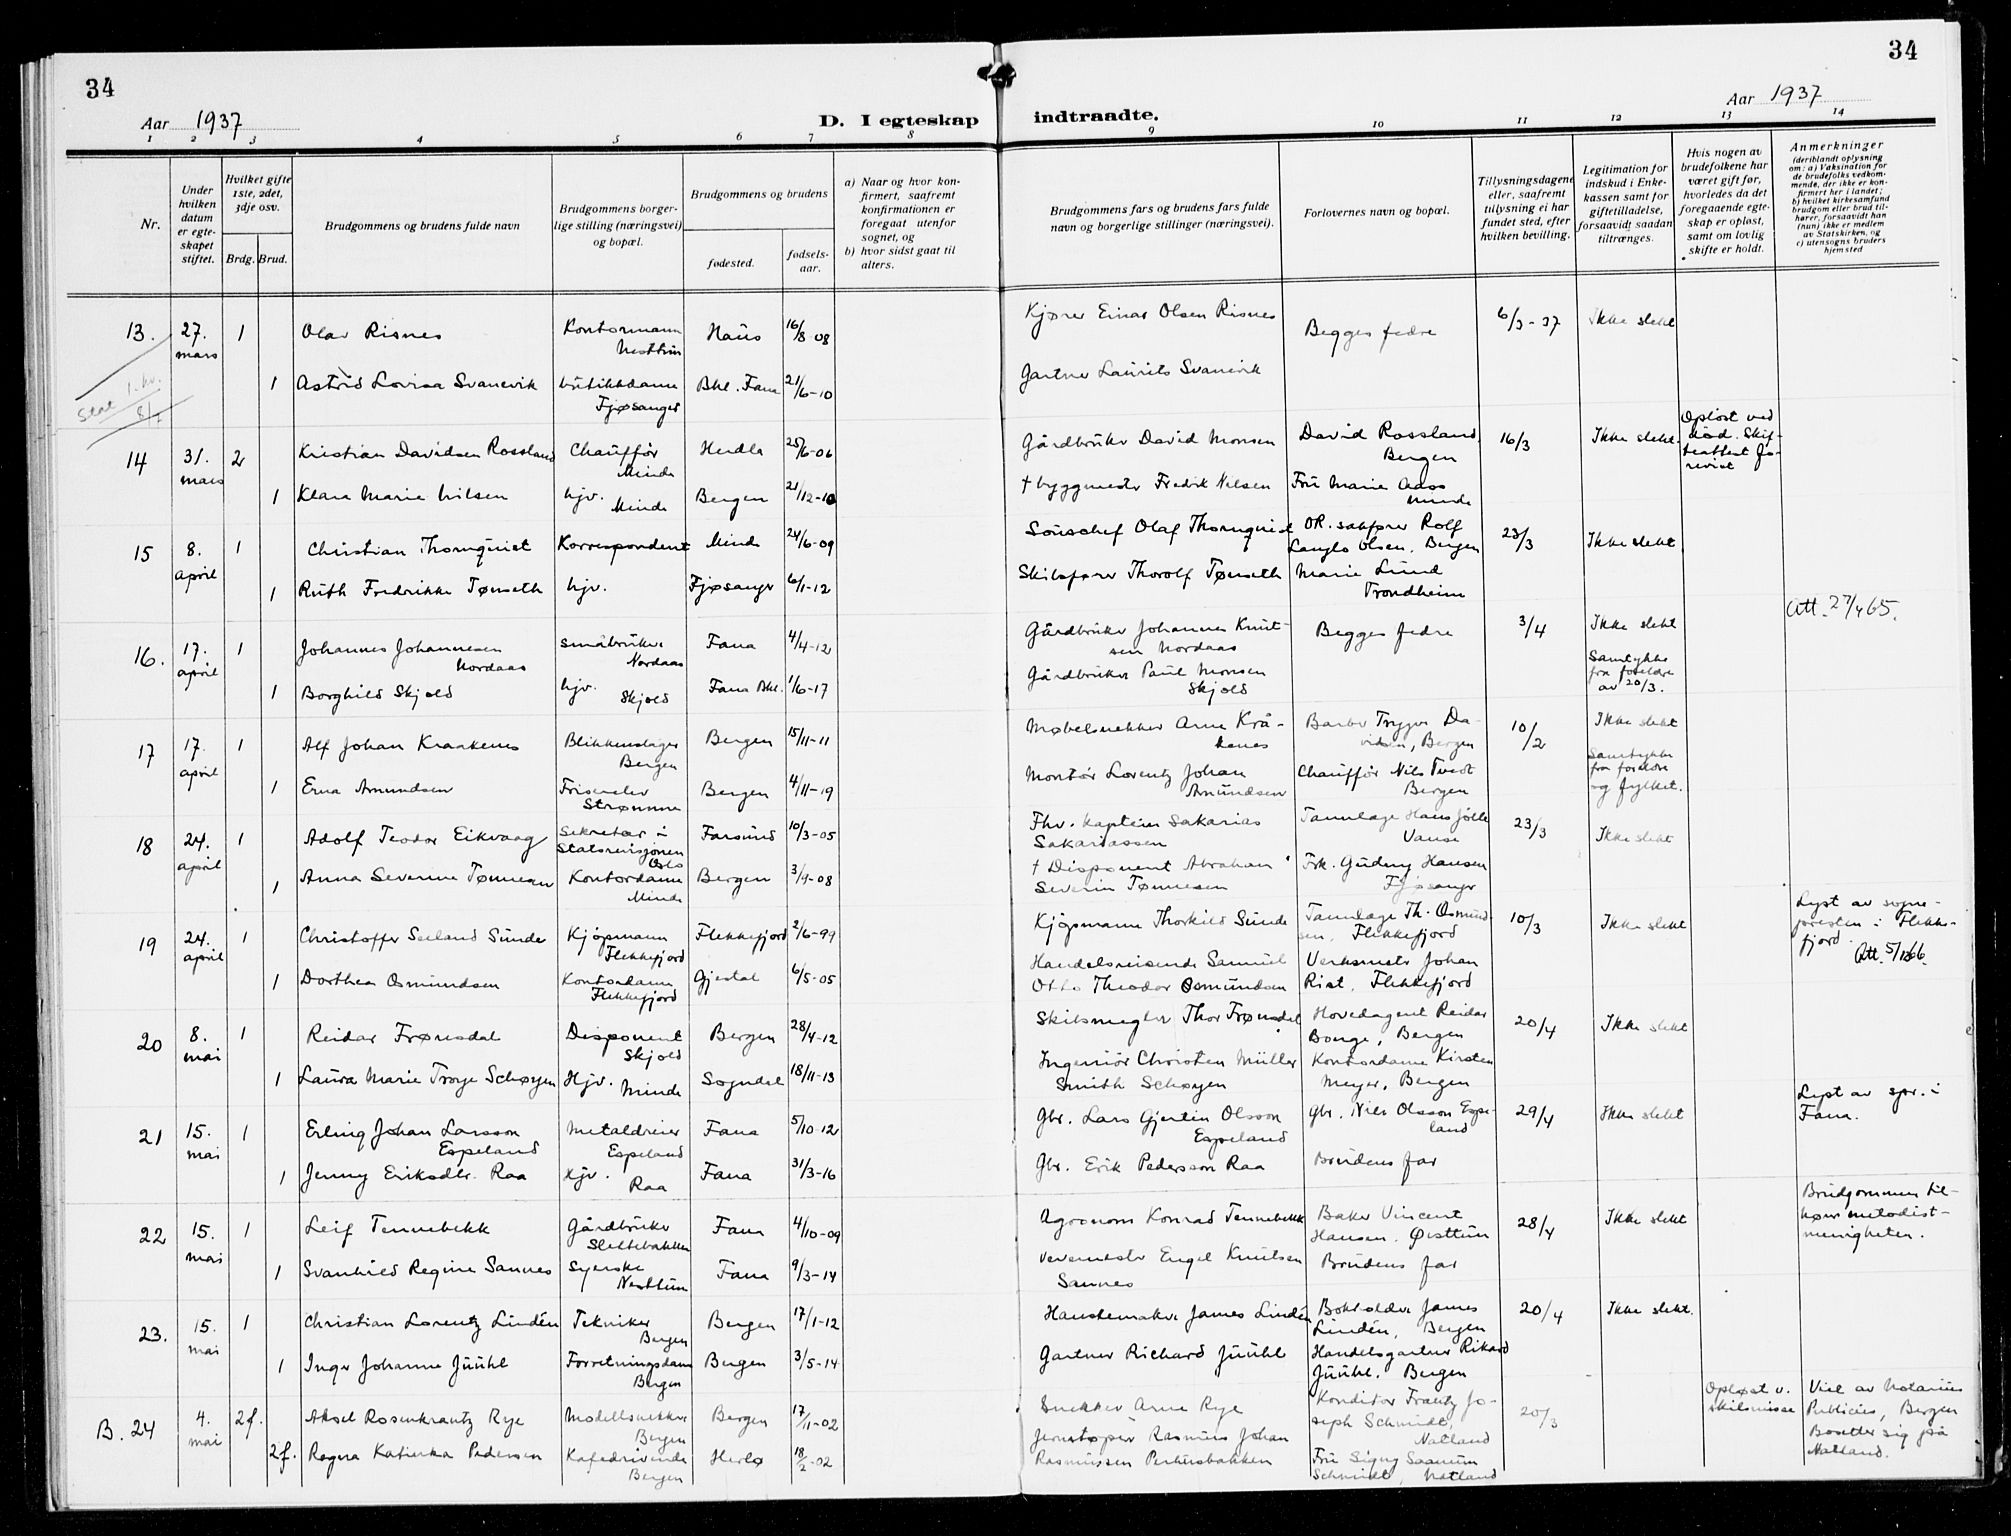 34
34
Aar 1937
D. I egteskap
indtraadte.
Aar 1937
1 2 3 4 5 6 7 8
9 10 11 12 13 14
Nr.
Under hvilken datum er egteskapet stiftet.
Hvilket gifte 1ste, 2det, 3dje osv.
Brdg. Brud.
Brudgommens og brudens fulde navn
Brudgommens borgerlige stilling (næringsvei) og bopæl.
Brudgommens og brudens
fødested.
fødselsaar.
a) Naar og hvor konfirmert, saafremt konfirmationen er foregaat utenfor sognet, og
b) hvor sidst gaat til alters.
Brudgommens fars og brudens fars fulde navn og borgerlige stillinger (næringsvei).
Forlovernes navn og bopæl.
Tillysningsdagene eller, saafremt tillysning ei har fundet sted, efter hvilken bevilling.
Legitimation for indskud i Enkekassen samt for giftetilladelse, forsaavidt saadan tiltrænges.
Hvis nogen av brudefolkene har været gift før, hvorledes da det foregaaende egteskap er opløst, samt om lovlig skifte er holdt.
Anmerkninger
(deriblandt oplysning om: a) Vaksination for de brudefolks vedkommende, der ikke er konfirmert her i landet; b) hvilket kirkesamfund brudgom eller brud tilhører, forsaavidt han (hun) ikke er medlem av Statskirken, og c) utensogns bruders hjemsted
13. 27. mars 1 Olav Risnes Kontormann Nesttun Haus 16/8 08 Kjører Einar Olsen Risnes Begges fedre 6/3-37 Ikke slekt
1 Astrid Lovisa Svanevik butikkdame Fjøsanger Bkl. Fana 21/6-10 Gartner Laurits Svanevik
Stat 1. kv.
14 31. mars 2 Kristian Davidsen Rossland Chauffør Minde Herdla 25/6-06 Gårdbruker David Monsen David Rossland, Bergen 16/3 Ikke slekt. Opløst ved død.
1 Klara Marie Nilsen hjv. Minde Bergen 21/12-10 † byggmester Fredrik Nilsen Fru Marie Aass Minde
15 8. april 1 Christian Thornquist Korrespondent Minde 24/6-09 Souschef Olaf Thornquist OR. sakfører Rolf Langlo Olsen. Bergen 23/3 Ikke slekt
1 Ruth Fredrikke Tønseth hjv. Fjøsanger 6/1-12 Skibsfører Thorolf Tønseth Marie Lund Trondheim
Att. 27/4 65.
16. 17. april 1 Johannes Johannesen Nordaas småbruker Nordaas Fana 4/4-12 Gårdbruker Johannes Knutsen Nordaas Begges fedre 3/4 Ikke slekt
1 Borghild Skjold hjv. Skjold Fana Bkl. 1/6-17 Gårdbruker Paul Monsen Skjold Samtykke fra foreldre av 20/3.
17 17. april 1 Alf Johan Kraakenes Blikkenslager Bergen Bergen 15/11-11 Møbelsnekker Arne Kråkenes Barber Trygve Davidsen, Bergen 10/2 Ikke slekt
1 Erna Amundsen Friserelev Strømme Bergen 4/11-19 Montør Lorentz Johan Amundsen Chauffør Nils Tvedt Bergen Samtykke fra foreldre og fylket.
18 24. april 1 Adolf Teodor Eikvaag Sekretær i Statsrevisjonen Oslo Farsund 10/3-05 Fhv. kaptein Sakarias Sakariassen Tannlæge Hans Jølle Vanse 23/3 Ikke slekt
1 Anna Severine Tønnesen Kontordame Minde Bergen 3/9-08 † Disponent Abraham Severin Tønnesen Frk. Gudny Hansen Fjøsanger
19 24. april 1 Christoffer Seiland Sunde Kjøpmann Flekkefjord Flekkefjord 2/6-99 Kjøpmann Thorkild Sunde Tannlæge Th. Osmundsen, Flekkefjord 10/3 Ikke slekt Lyst av sognepresten i Flekkefjord. Att. 5/12 66.
1 Dorthea Osmundsen Kontordame Flekkefjord Gjestal 6/5-05 Handelsreisende Samuel Otto Theodor Osmundsen Verksmstr Johan Rist, Flekkefjord
20 8. mai 1 Reidar Frønsdal Disponent Skjold Bergen 28/4-12 Skibsmegler Thor Frønsdal Hovedagent Reidar Bonge, Bergen 20/4 Ikke slekt
1 Laura Marie Troye Schøyen Hjv. Minde Sogndal 18/11-13 Ingeniør Christen Müller Smith Schøyen Kontordame Kirsten Meyer, Bergen
21 15. mai 1 Erling Johan Larsson Espeland Metaldreier Espeland Fana 5/10-12 Gbr. Lars Gjertin Olsson Espeland Gbr. Nils Olsson Espeland 29/4 Ikke slekt Lyst av spr. i Fana.
1 Jenny Eriksdtr. Raa Hjv. Raa Fana 31/3-16 Gbr. Erik Pedersson Raa Brudens far
22 15. mai 1 Leif Tennebekk Gårdbruker Slettebakken Fana 4/10-09 Agronom Konrad Tennebekk Baker Vincent Hansen. Øisttun 28/4 Ikke slekt Brudgommen tilhører metodistmenigheten.
1 Svanhild Regine Sannes Syerske Nesttun Fana 9/3-14 Vevemester Engel Knutsen Sannes Brudens far
23. 15. mai 1 Christian Lorentz Lindén Tekniker Bergen Bergen 17/1-12 Hanskemaker James Lindén Bokholder James Lindén, Bergen 20/4 Ikke slekt.
1 Inger Johanne Juuhl Forretningsdame Bergen Bergen 3/5-14 Gartner Richard Juuhl Handelsgartner Rikard Juuhl. Bergen
B. 24 4. mai 2f. Aksel Rosenkrantz Rye Modellsnekker Bergen Bergen 17/11-02 Snekker Arne Rye Konditor Frantz Joseph Schmidt, Natland 20/3 Opløst v. skilsmisse Viel av Notarius Publicus, Bergen Bosetter sig på Natland.
2f. Ragna Katinka Pedersen Kafedrivende Bergen Herlø 18/2-02 Jernstøper Rasmus Johan Rasmussen Perhusbakken Fru Signy Saanum Schmidt, Natland